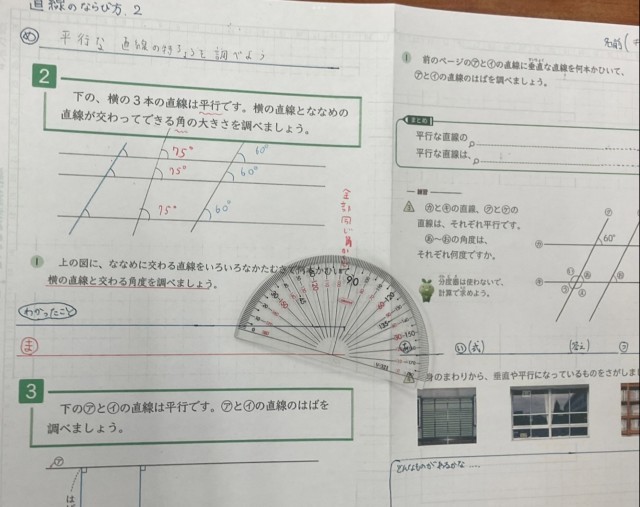 直線のならび方. 2
め 平行な 直線の特ちょうを調べよう
2
下の、横の3本の直線は平行です。横の直線とななめの
直線が交わってできる角の大きさを調べましょう。
75° 60°
75° 60°
75° 60°
全部同じ角
1 上の図に、ななめに交わる直線をいろいろなかたむきで何本かひいて、
横の直線と交わる角度を調べましょう。
わかったこと
ま
3
下の㋐と㋑の直線は平行です。㋐と㋑の直線のはばを
調べましょう。
㋐
は
90
名前(
1 前のページの㋐と㋑の直線に垂直な直線を何本かひいて、
㋐と㋑の直線のはばを調べましょう。
まとめ
平行な直線の
平行な直線は、
練習
㋕と㋖の直線、㋗と㋘の
直線は、それぞれ平行です。
あ〜おの角度は、
それぞれ何度ですか。
分度器は使わないで、
計算で求めよう。
60°
い(式) (答え) う
身のまわりから、垂直や平行になっているものをさがしま
どんなものがあるかな....